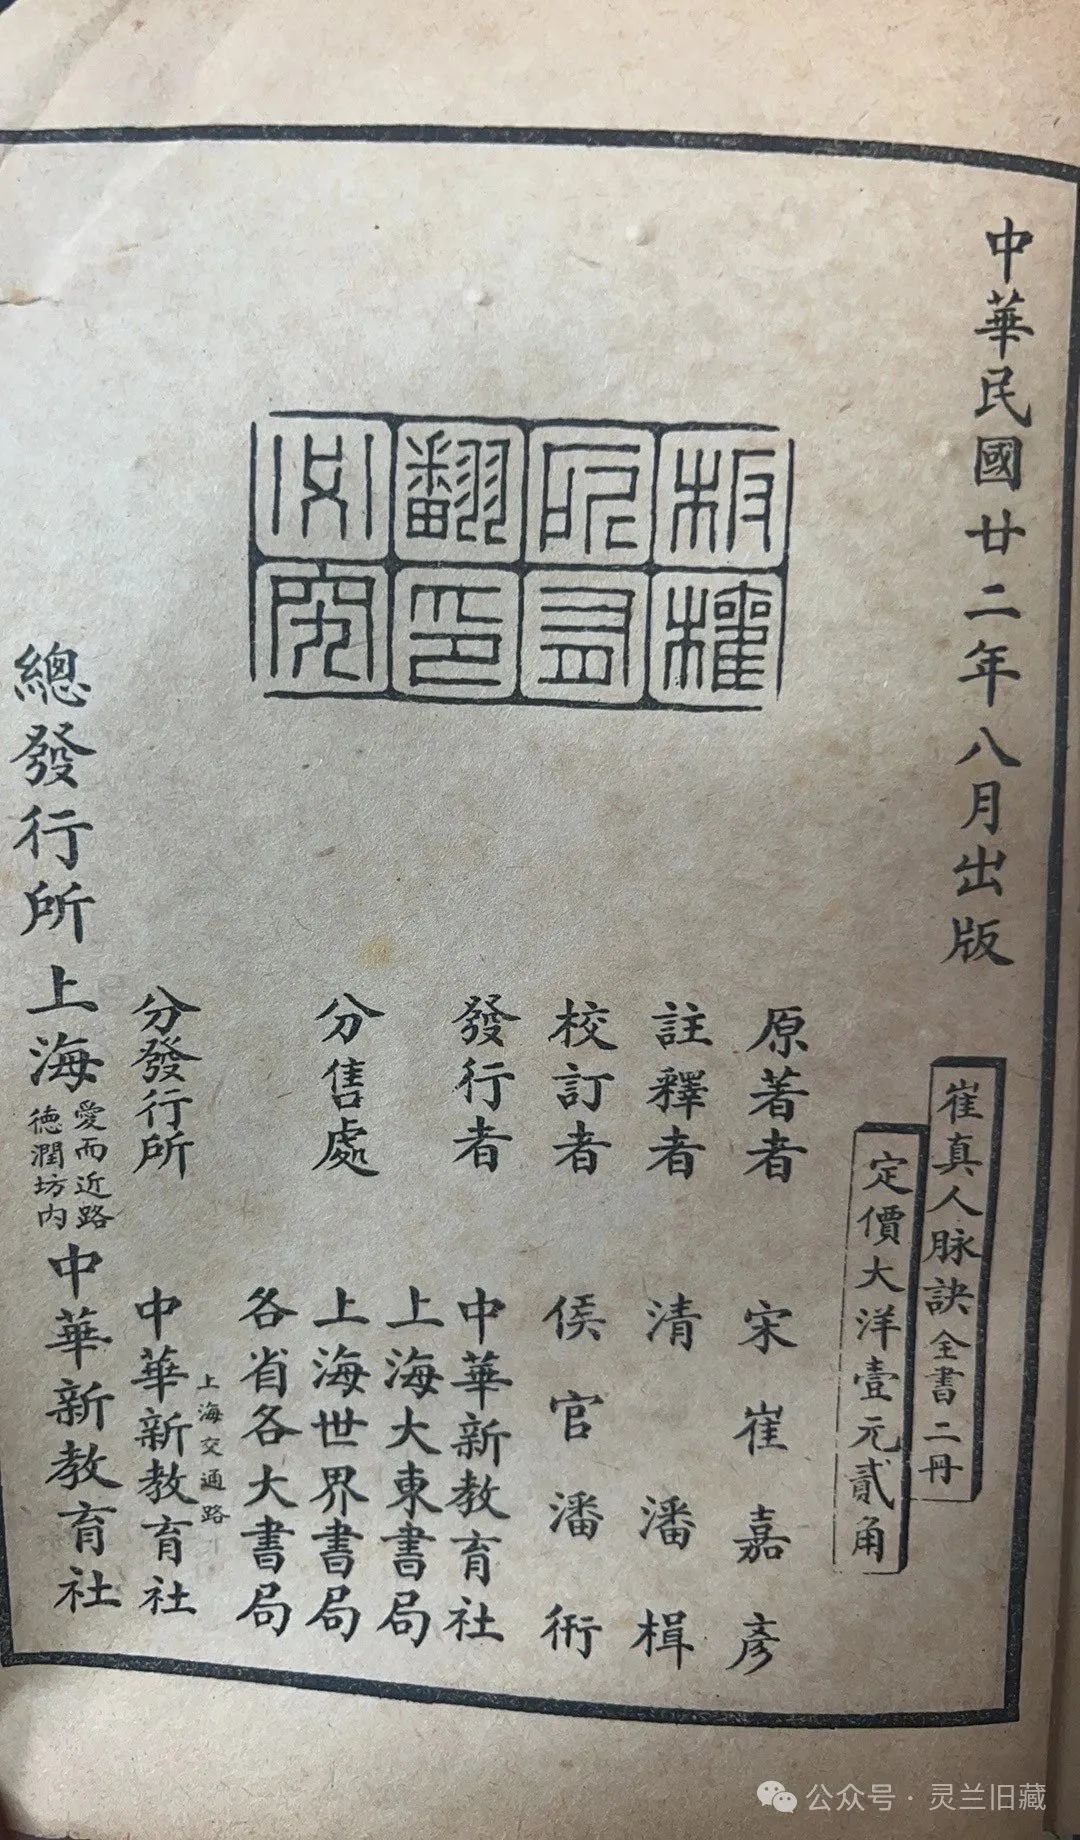 中華民國廿二年八月出版
崔真人脉訣全書二冊
定價大洋壹元貳角
板權
所有
翻印
必究
原著者 宋崔嘉彥
註釋者 清潘楫
校訂者 侯官潘術
發行者 中華新教育社
分售處 上海大東書局
上海世界書局
各省各大書局
分發行所 上海交通路
中華新教育社
總發行所上海 愛而近路
德潤坊內
中華新教育社
公众号·灵兰旧藏